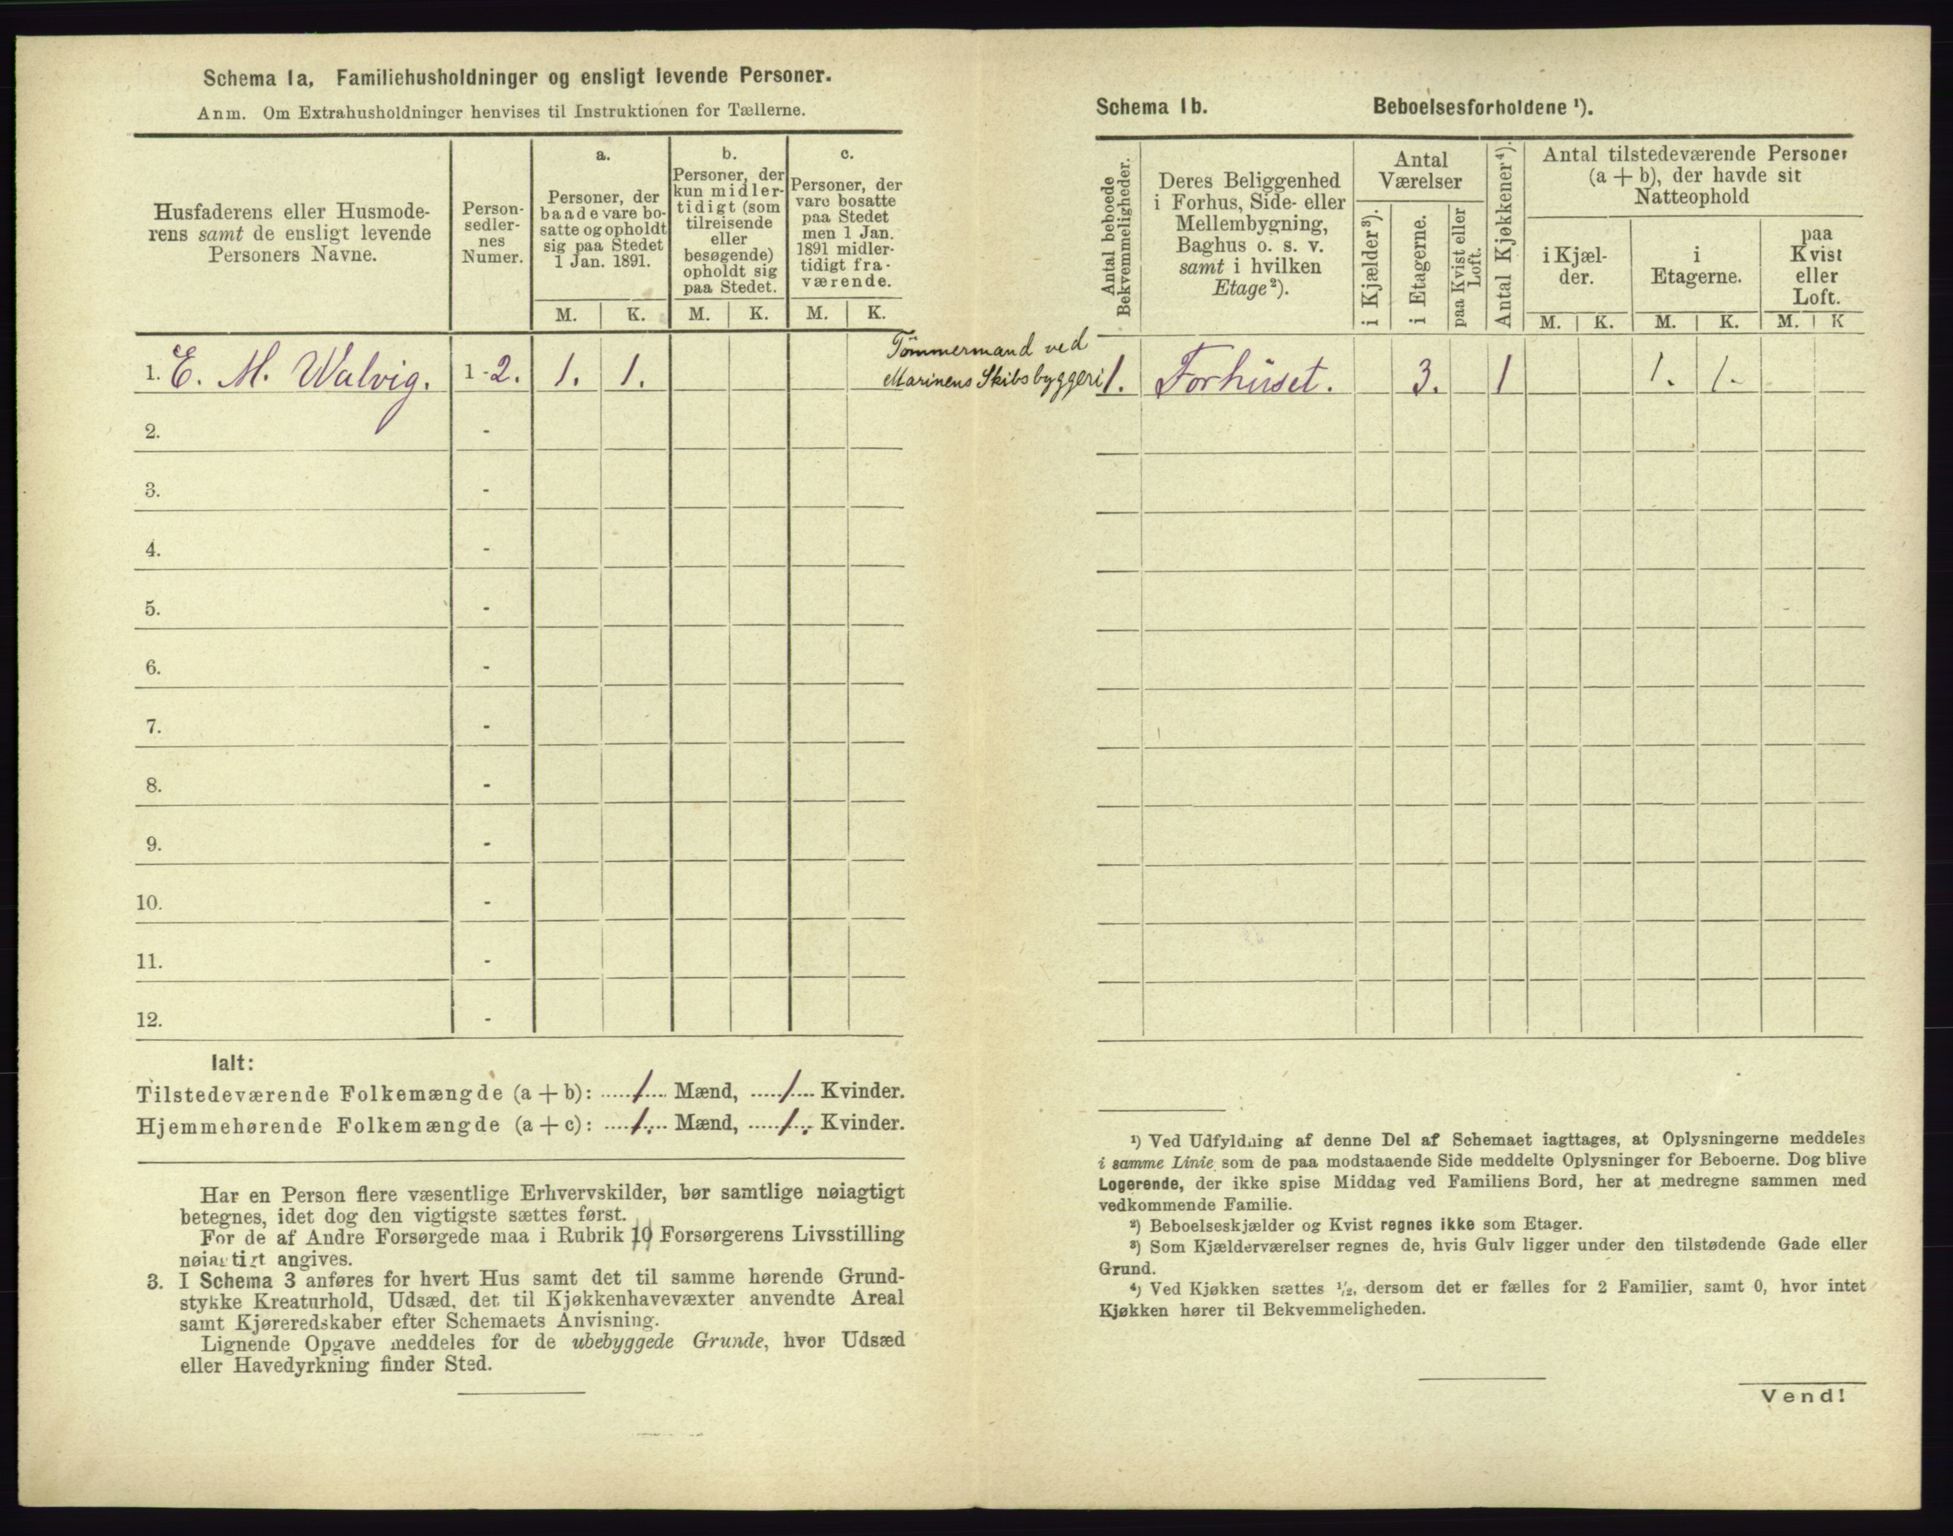 Schema 1a, Familiehusholdninger og ensligt levende Personer.
Anm. Om Extrahusholdninger henvises til Instruktionen for Tællerne.
Husfaderens eller Husmode-
rens samt de ensligt levende
Personers Navne.
Person-
sedler-
nes
Numer.
a.
Personer, der
baade vare bo-
satte og opholdt
sig paa Stedet
1 Jan. 1891.
b.
Personer, der
kun midler-
tidigt (som
tilreisende
eller
besøgende)
opholdt sig
paa Stedet.
c.
Personer, der
vare bosatte
paa Stedet
men 1 Jan.
1891 midler-
tidigt fra-
værende.
M. K. M. K. M. K.
1. E. M. Walvig. 1-2. 1. 1.
Tömmermand ved
Marinens Skibsbyggeri
2. -
3. -
4. -
5. -
6. -
7. -
8. -
9. -
10. -
11. -
12. -
Ialt:
Tilstedeværende Folkemængde (a + b): 1 Mænd, 1 Kvinder.
Hjemmehørende Folkemængde (a + c): 1. Mænd, 1. Kvinder.
Har en Person flere væsentlige Erhvervskilder, bør samtlige nøiagtigt
betegnes, idet dog den vigtigste sættes først.
For de af Andre Forsørgede maa i Rubrik 10 Forsørgerens Livsstilling
nøiagtigt angives.
3. I Schema 3 anføres for hvert Hus samt det til samme hørende Grund-
stykke Kreaturhold, Udsæd, det til Kjøkkenhavevæxter anvendte Areal
samt Kjøreredskaber efter Schemaets Anvisning.
Lignende Opgave meddeles for de ubebyggede Grunde, hvor Udsæd
eller Havedyrkning finder Sted.
Schema 1b. Beboelsesforholdene ¹).
Antal beboede
Bekvemmeligheder.
Deres Beliggenhed
i Forhus, Side- eller
Mellembygning,
Baghus o. s. v.
samt i hvilken
Etage²).
Antal
Værelser
i Kjælder³).
i Etagerne.
paa Kvist eller
Loft.
Antal Kjøkkener⁴).
Antal tilstedeværende Personer
(a + b), der havde sit
Natteophold
i Kjæl-
der.
i
Etagerne.
paa
Kvist
eller
Loft.
M. K. M. K. M. K
1. Forhuset. 3. 1 1. 1.
¹) Ved Udfyldning af denne Del af Schemaet iagttages, at Oplysningerne meddeles
i samme Linie som de paa modstaaende Side meddelte Oplysninger for Beboerne. Dog blive
Logerende, der ikke spise Middag ved Familiens Bord, her at medregne sammen med
vedkommende Familie.
²) Beboelseskjælder og Kvist regnes ikke som Etager.
³) Som Kjælderværelser regnes de, hvis Gulv ligger under den tilstødende Gade eller
Grund.
⁴) Ved Kjøkken sættes ½, dersom det er fælles for 2 Familier, samt 0, hvor intet
Kjøkken hører til Bekvemmeligheden.
Vend!